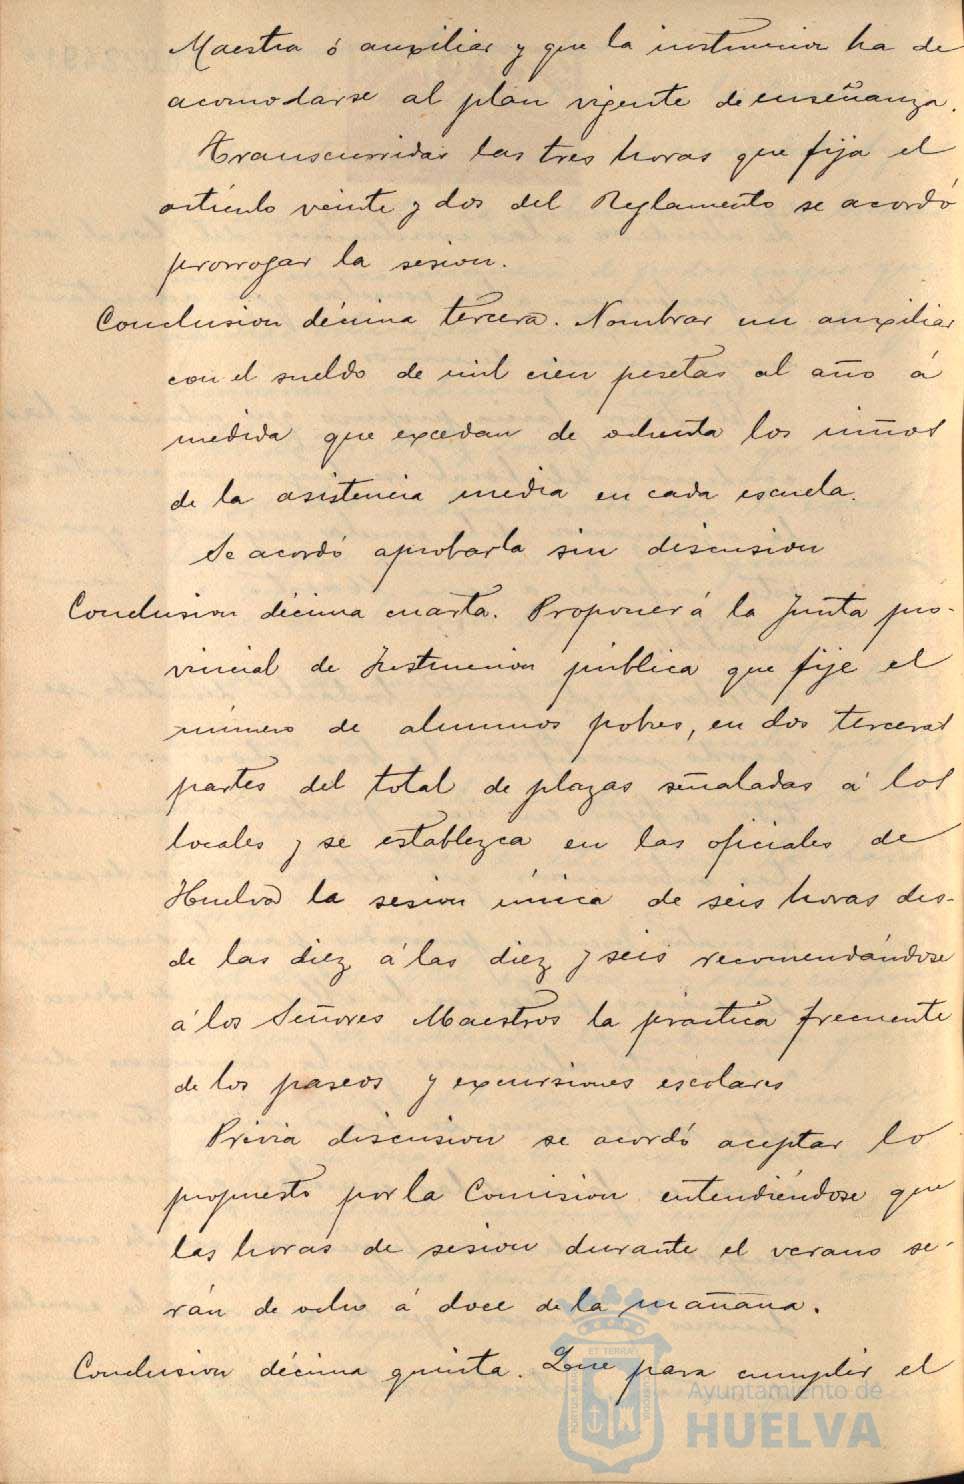 Maestra ó auxiliar y que la instruccion ha de
acomodarse al plan vigente de enseñanza.
Transcurridas las tres horas que fija el
artículo veinte y dos del Reglamento se acordó
prorrogar la sesion.
Conclusion décima tercera. Nombrar un auxiliar
con el sueldo de mil cien pesetas al año á
medida que excedan de ochenta los niños
de la asistencia media en cada escuela.
Se acordó aprobarla sin discusion
Conclusion décima cuarta. Proponer á la Junta pro-
vincial de Instruccion pública que fije el
número de alumnos pobres, en dos terceras
partes del total de plazas señaladas á los
locales y se establezca en las oficiales de
Huelva la sesion única de seis horas des-
de las diez á las diez y seis recomendándose
á los Señores Maestros la práctica frecuente
de los paseos y excursiones escolares
Prévia discusion se acordó aceptar lo
propuesto por la Comision entendiéndose que
las horas de sesion durante el verano se-
rán de ocho á doce de la mañana.
Conclusion décima quinta. Que para cumplir el
ET TERRÆ
Ayuntamiento de
HUELVA